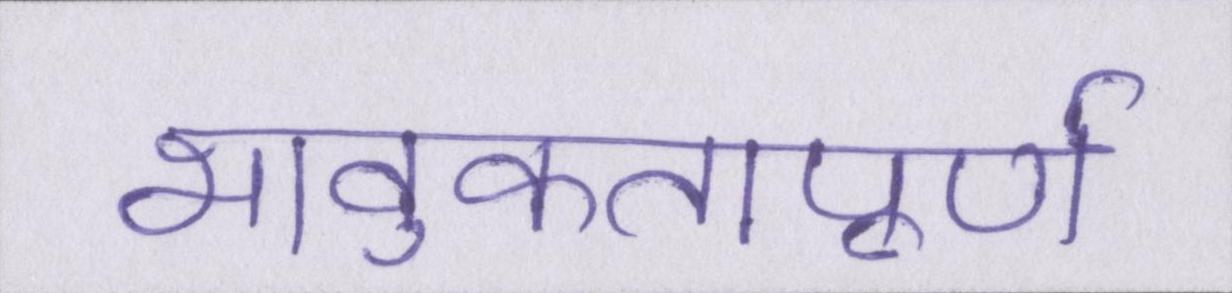 भावुकतापूर्ण